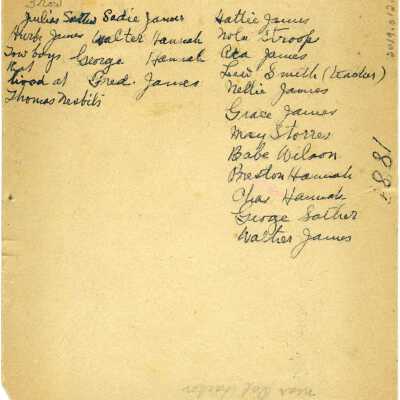 Julius Sather Sadie James
Herb James Walter Hannah
Tow boys George Hannah
that
lived at Fred. James
Thomas Nesbits
Hattie James
Nola Stroop
Asa James
Lew Smith (Teacher)
Nellie James
Grace James
May Storres
Babe Wilson
Preston Hannah
Chas Hannah
George Sather
Walter James
1881